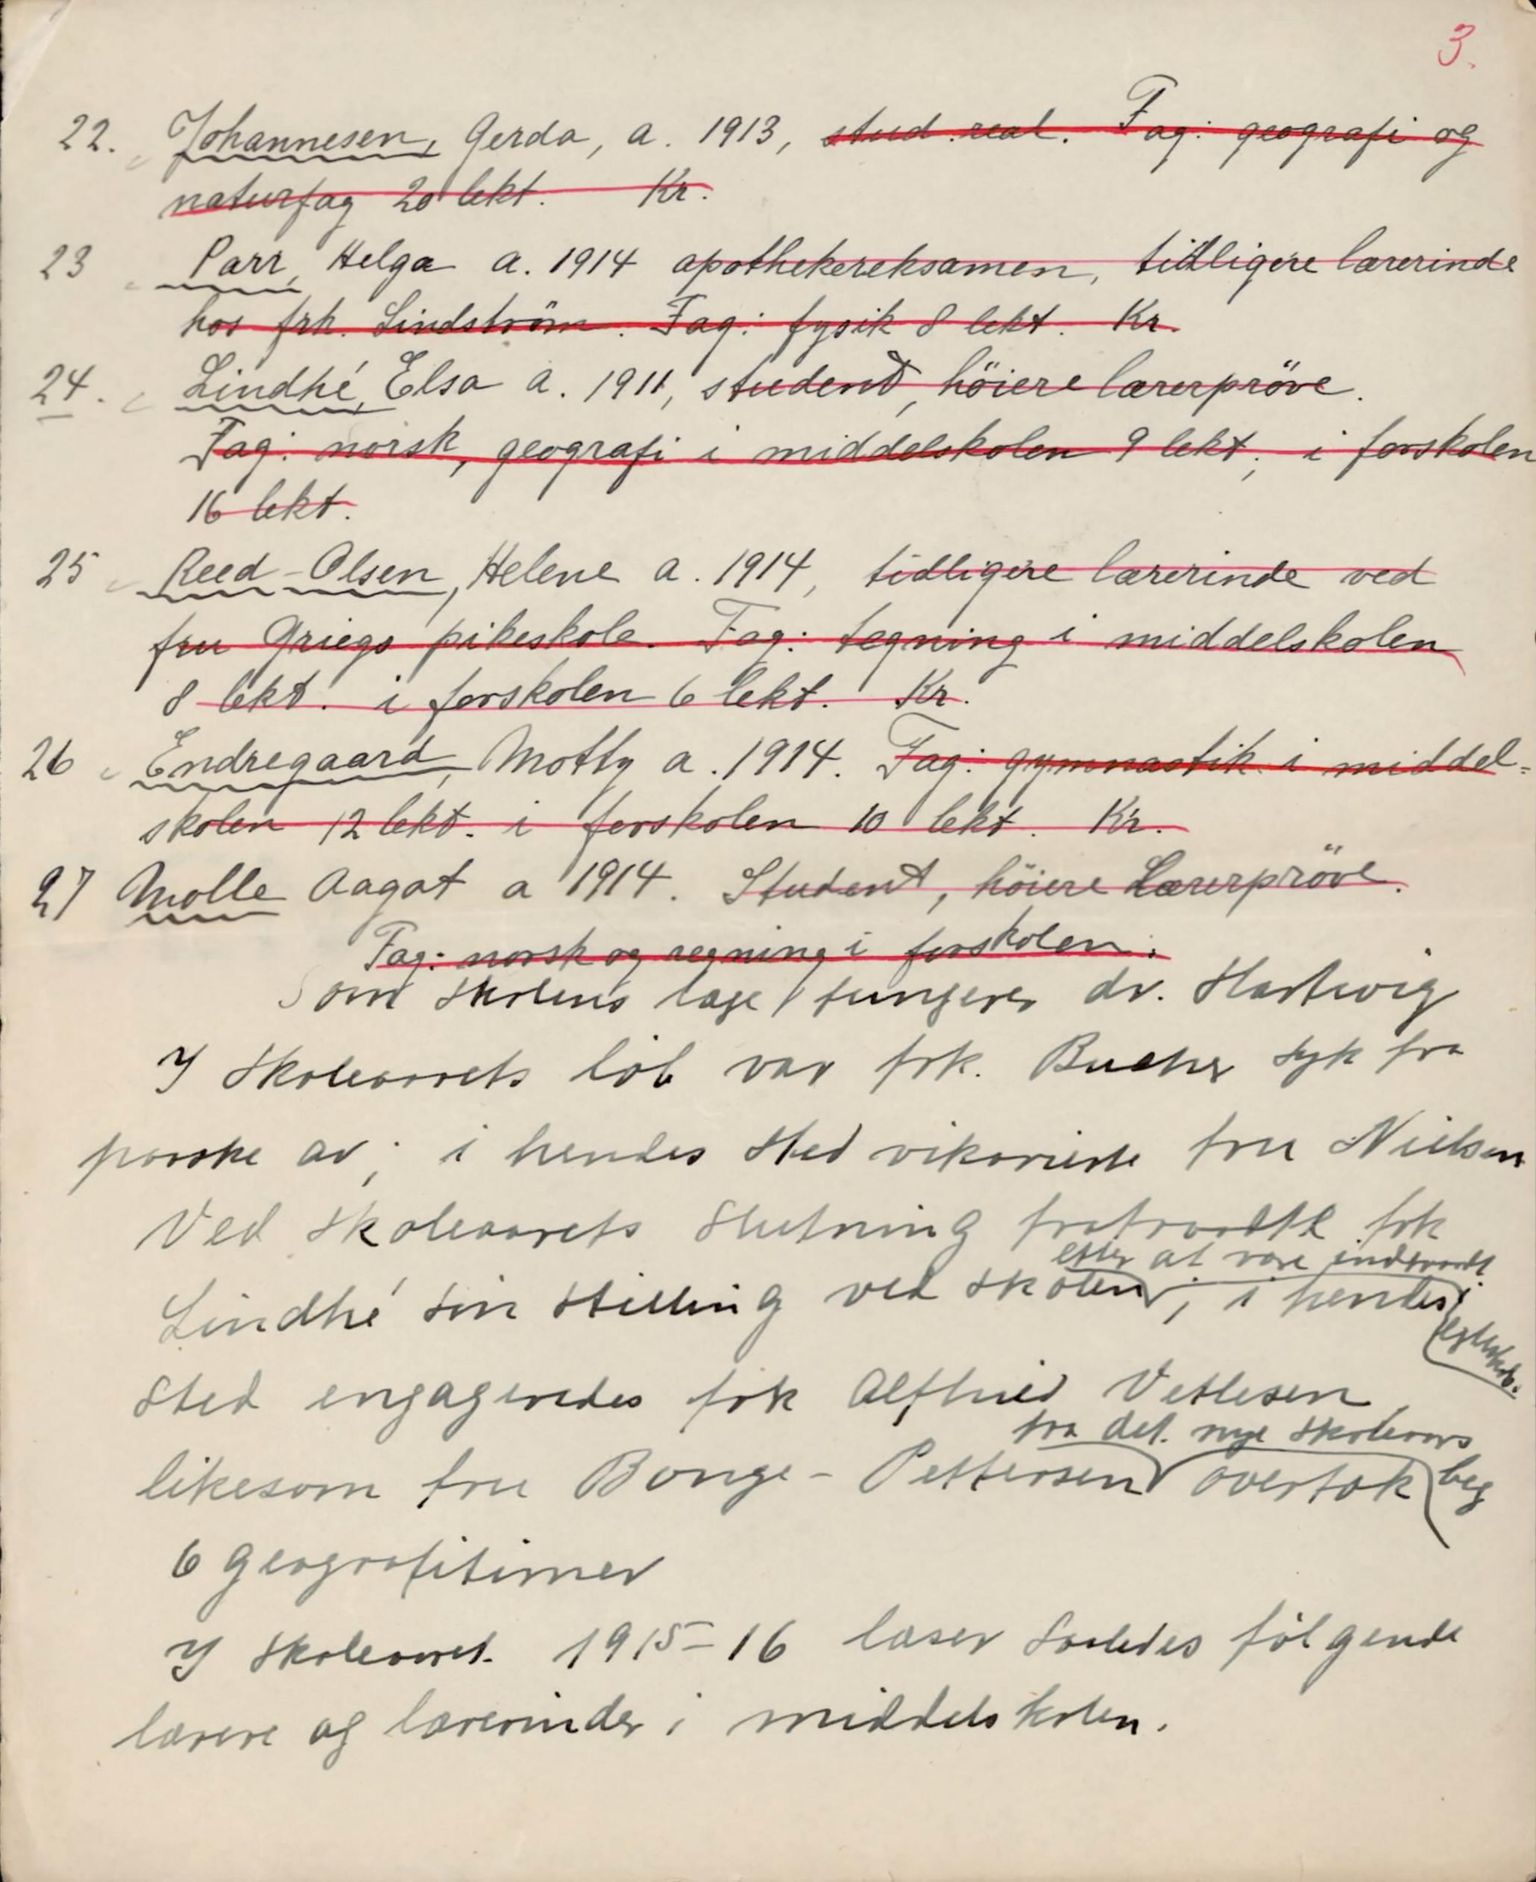 3.
22. Johannesen, Gerda, a. 1913, stud. real. Fag: geografi og
naturfag 20 lekt. Kr.
23 Parr, Helga a. 1914 apothekereksamen, tidligere lærerinde
hos frk. Lindström. Fag: fysik 8 lekt. Kr.
24. Lindhé, Elsa a. 1911, student, höiere lærerpröve.
Fag: norsk, geografi i middelskolen 9 lekt., i forskolen
16 lekt.
25 Reed-Olsen, Helene a. 1914, tidligere lærerinde ved
fru Griegs pikeskole. Fag: tegning i middelskolen
8 lekt. i forskolen 6 lekt. Kr.
26 Endregaard, Motty a. 1914. Fag: gymnastik i middel=
skolen 12 lekt. i forskolen 10 lekt. Kr.
27 Molle Aagot a 1914. Student, höiere Lærerpröve.
Fag: norsk og regning i forskolen.
Som skolens læge fungerer dr. Hartwig
I skoleaarets löb var frk. Bucher syk fra
paaske av; i hendes sted vikarierte fru Nielsen
Ved skoleaarets slutning fratraadte frk
efter at være indtraadt i
Lindhé sin stilling ved skolen, i hendes
egteskab.
sted engageredes frk Alfhild Vetlesen,
fra det nye skoleaars
likesom fru Bonge-Pettersen overtok beg
6 geografitimer
I skoleaaret 1915-16 læser saaledes fölgende
lærere og lærerinder i middelskolen.